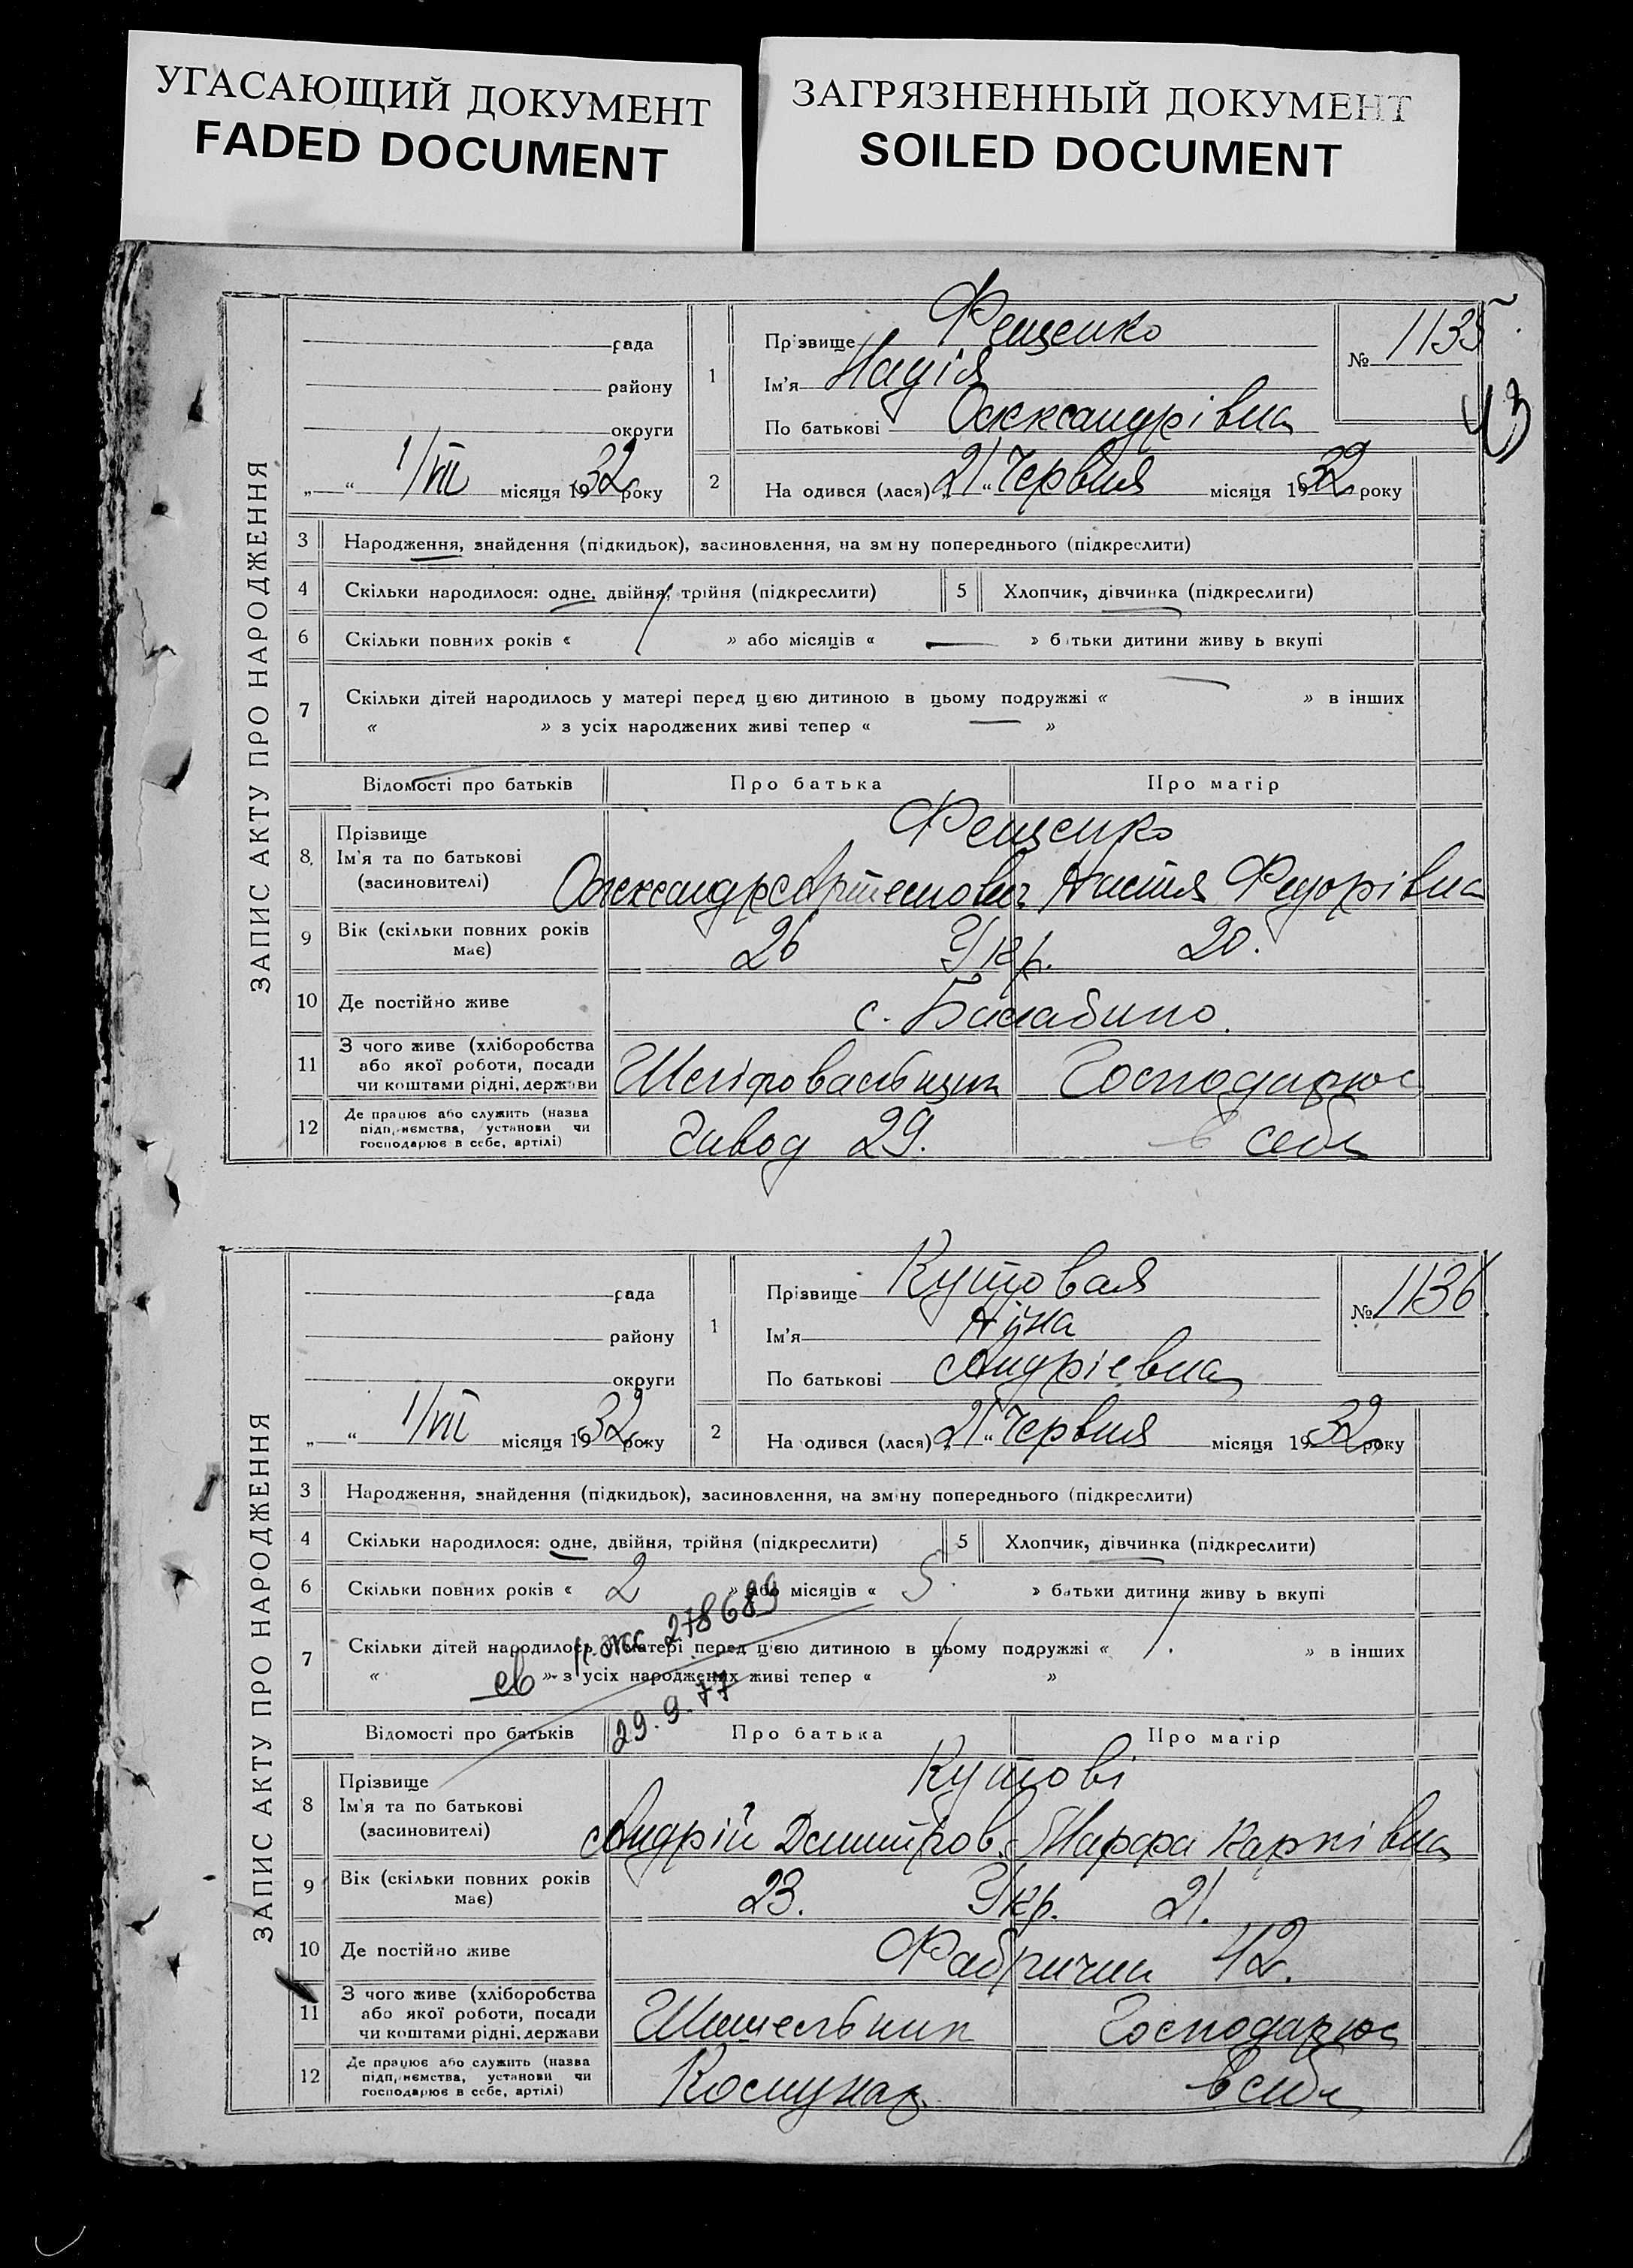 УГАСАЮЩИЙ ДОКУМЕНТ
FADED DOCUMENT
ЗАГРЯЗНЕННЫЙ ДОКУМЕНТ
SOILED DOCUMENT
ЗАПИС АКТУ ПРО НАРОДЖЕННЯ
рада
району
округи
„ “ 1/VII місяця 1932 року
1
Прізвище Фещенко
Ім'я Надія
По батькові Олександрівна
№ 1135
2 На одився (лася) „21“ Червня місяця 1932 року
3 Народження, знайдення (підкидьок), засиновлення, на зм ну попереднього (підкреслити)
4 Скільки народилося: одне, двійня, трійня (підкреслити) 5 Хлопчик, дівчинка (підкреслити)
6 Скільки повних років « » або місяців « — » батьки дитини живу ь вкупі
7 Скільки дітей народилось у матері перед цією дитиною в цьому подружжі « — » в інших
« » з усіх народжених живі тепер « — »
Відомості про батьків Про батька Про матір
8. Прізвище
Ім'я та по батькові
(засиновителі)
Фещенко
Олександр Артемович Настя Федорівна
9 Вік (скільки повних років має) 26 Укр. 20.
10 Де постійно живе с. Балабино.
11 З чого живе (хліборобства
або якої роботи, посади
чи коштами рідні, держави
Шліфовальщик Господарює
12 Де працює або служить (назва
підприємства, установи чи
господарює в себе, артілі)
Завод 29. в себе
ЗАПИС АКТУ ПРО НАРОДЖЕННЯ
рада
району
округи
„ “ 1/VII місяця 1932 року
1
Прізвище Кутовая
Ім'я
По батькові Андріевна
№ 1136
2 На одився (лася) „21“ Червня місяця 1932 року
3 Народження, знайдення (підкидьок), засиновлення, на зм ну попереднього (підкреслити)
4 Скільки народилося: одне, двійня, трійня (підкреслити) 5 Хлопчик, дівчинка (підкреслити)
6 Скільки повних років « 2 » або місяців « 5 » батьки дитини живу ь вкупі
278689
7 Скільки дітей народилось у матері перед цією дитиною в цьому подружжі « / » в інших
« » з усіх народжених живі тепер « »
29.9.77
Відомості про батьків Про батька Про матір
8 Прізвище
Ім'я та по батькові
(засиновителі)
Кутові
Андрій Дмитров. Марфа Карпівна
9 Вік (скільки повних років має) 23. Укр. 21.
10 Де постійно живе Фабричн 42.
11 З чого живе (хліборобства
або якої роботи, посади
чи коштами рідні, держави
Господарює
12 Де працює або служить (назва
підприємства, установи чи
господарює в себе, артілі)
Комунар. в себе